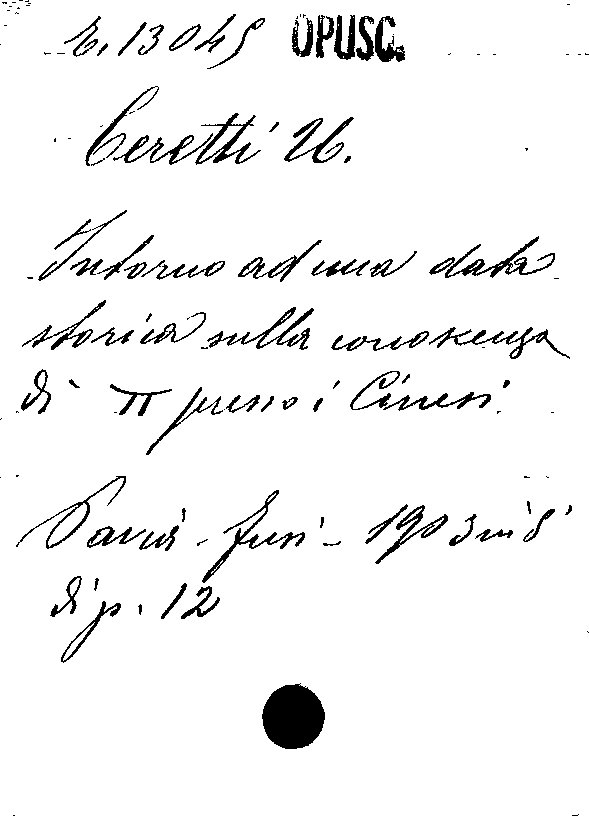 E. 13045 OPUSC.
Ceretti U.
Intorno ad una data
storica sulla conoscenza
di π presso i Cinesi.
Pavia - Fusi - 1903 in 8°
di p. 12